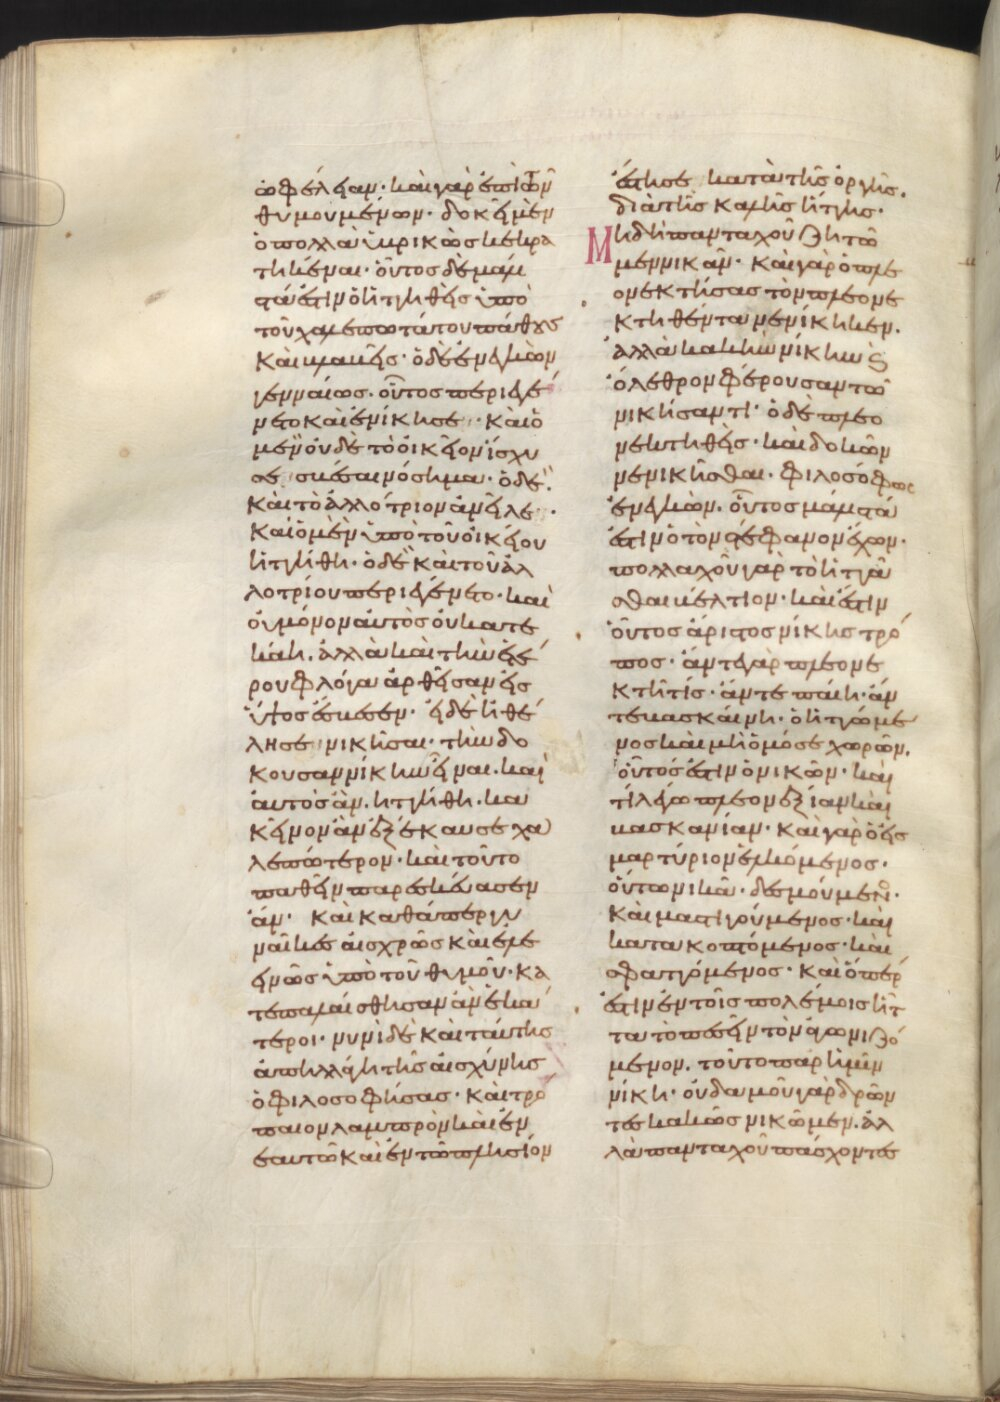 ὠφέλειαν· καὶ γὰρ ἐπὶ τῶν
θυμουμένων· δοκεῖ μὲν
ὁ πολλὰ ὑβρικὼς κεκρα
τηκέναι· οὗτος δὲ μάλι
στά ἐστιν ὁ ἡττηθεὶς ὑπὸ
τοῦ χαλεπωτάτου πάθους
καὶ βλαβεὶς· ὁ δὲ ἐνεγκὼν
γενναίως· οὗτος περιεγέ
νετο καὶ ἐνίκησε· καὶ ὁ
μὲν οὐδὲ τὸ οἰκεῖον ἴσχυ
σε σβέσαι νόσημα· ὁ δὲ
καὶ τὸ ἀλλότριον ἀνεῖλε·
καὶ ὁ μὲν ὑπὸ τοῦ οἰκείου
ἡττήθη· ὁ δὲ καὶ τοῦ ἀλ
λοτρίου περιεγένετο· καὶ
οὐ μόνον αὐτὸς οὐ κατε
κάη· ἀλλὰ καὶ τὴν ἑτέ
ρου φλόγα ἀρθεῖσαν εἰς
ὕψος ἔσβεσεν· εἰ δὲ ἠθέ
λησε νικῆσαι· τὴν δο
κοῦσαν νίκην εἶναι· καὶ
αὐτὸς ἂν ἡττήθη· κα
κεῖνον ἂν ἐξέκαυσε χα
λεπώτερον· καὶ τοῦτο
παθεῖν παρεσκεύασεν
ἄν· καὶ καθάπερ γυ
ναῖκες αἰσχρῶς καὶ ἐλε
εινῶς ὑπὸ τοῦ θυμοῦ· κα
τεπαλαίσθησαν ἂν ἑκά
τεροι· νυνὶ δὲ καὶ ταύτης
ἀπηλλάγη τῆς αἰσχύνης
ὁ φιλοσοφήσας· καὶ τρό
παιον λαμπρὸν καὶ ἐν
ἑαυτῷ καὶ ἐν τῷ πλησίον
ἔστησε κατὰ τῆς ὀργῆς·
διὰ τῆς καλῆς ἥττης·
Μὴ δὴ πανταχοῦ ζήτω
μεν νικᾶν· καὶ γὰρ ὁ πλε
ονεκτήσας τὸν πλεονε
κτηθέντα νενίκηκεν·
ἀλλὰ κακὴν νίκην καὶ
ὄλεθρον φέρουσαν τῷ
νικήσαντι· ὁ δὲ πλεο
νεκτηθεὶς· καὶ δοκῶν
νενικῆσθαι· φιλοσόφως
ἐνεγκὼν· οὗτος μάλιστά
ἐστιν ὁ τὸν στέφανον ἔχων·
πολλαχοῦ γὰρ τὸ ἡττᾶ
σθαι βέλτιον· καὶ ἔστιν
οὗτος ἄριστος νίκης τρό
πος· ἄν τε γὰρ πλεονε
κτῇ τίς· ἄν τε παίῃ· ἄν
τε βασκαίνῃ· ὁ ἡττώμε
νος καὶ μὴ ὁμόσε χωρῶν·
οὗτός ἐστιν ὁ νικῶν· καὶ
τί λέγω πλεονεξίαν καὶ
βασκανίαν· καὶ γὰρ ὁ εἰς
μαρτύριον ἑλκόμενος·
οὕτω νικᾷ· δεσμούμενος·
καὶ μαστιγούμενος· καὶ
κατακοπτόμενος· καὶ
σφαττόμενος· καὶ ὅπερ
ἐστὶν ἐν τοῖς πολέμοις ἧτ
τα τὸ πεσεῖν τὸν ἀγωνιζό
μενον· τοῦτο παρ ἡμῖν
νίκη· οὐδαμοῦ γὰρ δρῶν
τες κακῶς νικῶμεν· ἀλ
λὰ πανταχοῦ πάσχοντες